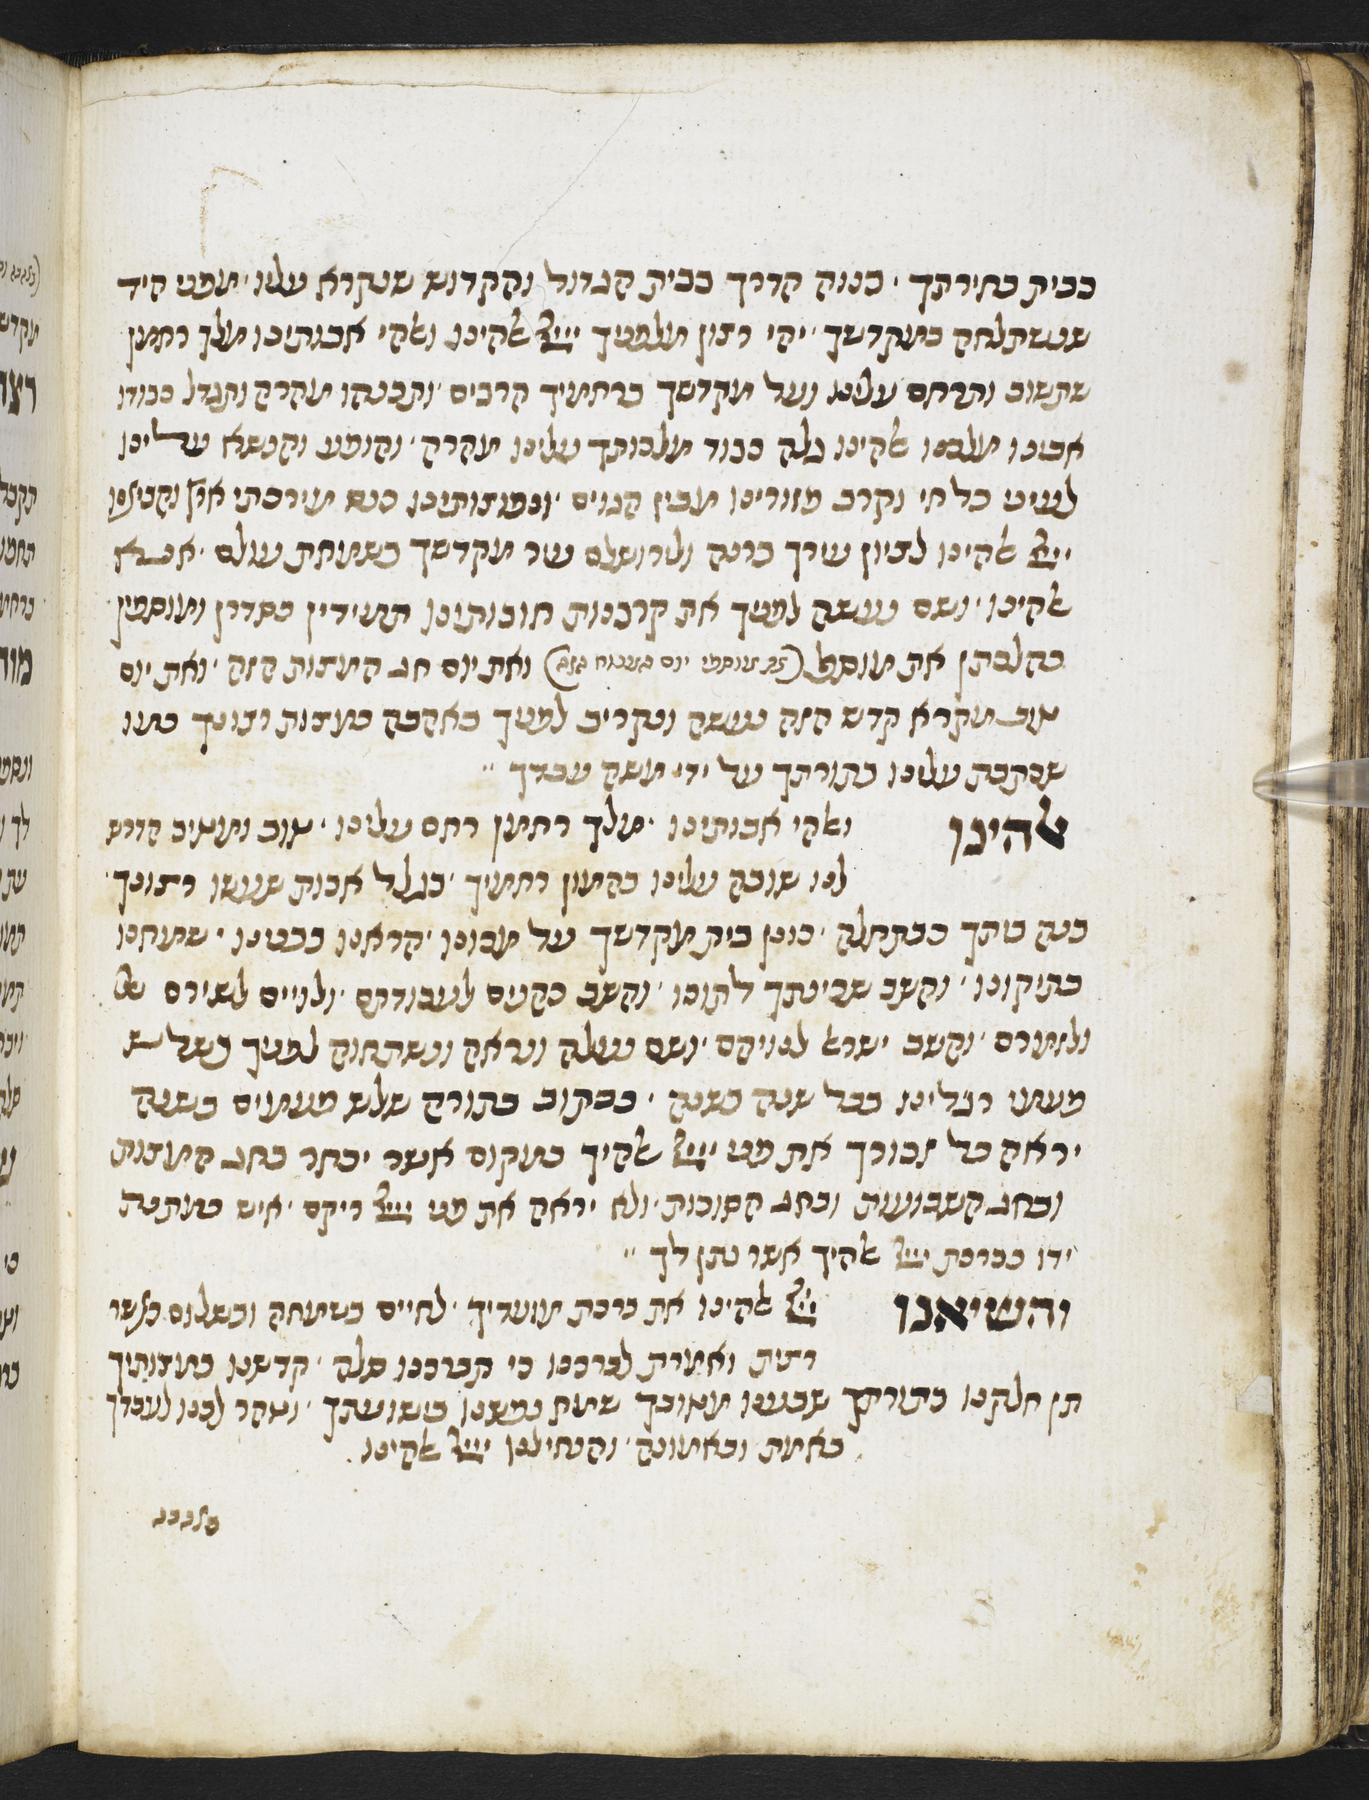 בבית בחירתך · בנוה הדרך בבית הגדול והקדוש שנקרא עליו · מפני היד
שנשתלחה במקדשך · יהי רצון מלפניך ייי אלהינו ואלהי אבותינו מלך רחמן
שתשוב ותרחם עלינו ועל מקדשך ברחמיך הרבים · ותבנהו מהרה ותגדל כבודו
אבינו מלכנו אלהינו גלה כבוד מלכותך עלינו מהרה · והופע והנשא עלינו
לעיני כל חי וקרב פזורינו מבין הגוים · ונפוצותינו כנס מירכתי ארץ והביאנו
ייי אלהינו לציון עירך ברנה ולירושלם עיר מקדשך בשמחת עולם · אנא
אלהינו · ושם נעשה לפניך את קרבנות חובותינו תמידין כסדרן ומוספין
כהלכתן את מוסף (את מוספי יום השבת הזה) ואת יום חג המצות הזה · ואת יום
טוב מקרא קדש הזה נעשה ונקריב לפניך באהבה כמצות רצונך כמו
שכתבת עלינו בתורתך על ידי משה עבדך ״
אלהינו ואלהי אבותינו · מלך רחמן רחם עלינו · טוב ומטיב הדרש
לנו שובה עלינו בהמון רחמיך · בגלל אבות שעשו רצונך ·
בנה ביתך כבתחלה · כונן בית מקדשך על מכונו · הראנו בבנינו · שמחנו
בתיקונו · והשב שכינתך לתוכו · והשב כהנים לעבודתם · ולויים לשירם של
ולזמרם · והשב ישראל לנויהם · ושם נעלה ונראה ונשתחוה לפניך בשלש
פעמי רגלינו בכל שנה בשנה · ככתוב בתורה שלש פעמים בשנה
יראה כל זכורך את פני ייי אלהיך במקום אשר יבחר בחג המצות
ובחג השבועות ובחג הסוכות · ולא יראה את פני ייי ריקם · איש כמתנת
ידו כברכת ייי אלהיך אשר נתן לך ״
והשיאנו ייי אלהינו את ברכת מועדיך · לחיים בשמחה ובשלום כאשר
רצית ואמרת לברכנו כי תברכנו סלה · קדשנו במצותיך
תן חלקנו בתורתך שבענו מטובך שמח נפשנו בישועתך · וטהר לבנו לעבדך
באמת ובאמונה · והנחילנו ייי אלהינו ·